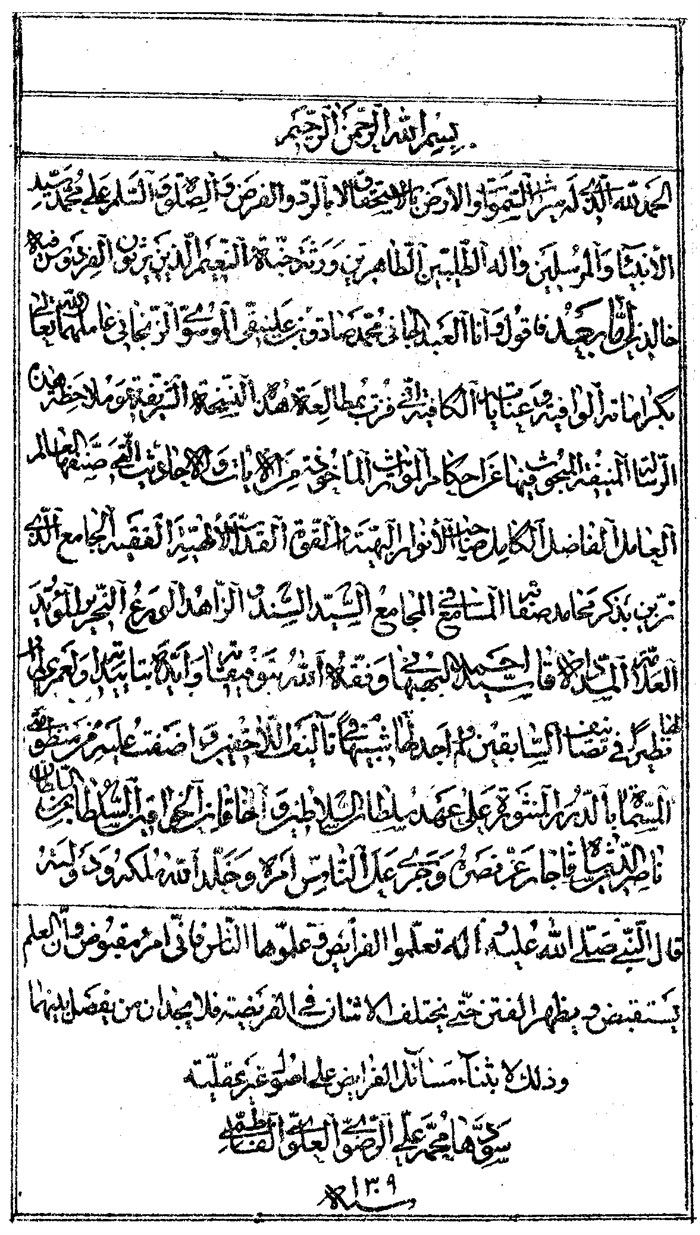 بسم الله الرحمن الرحيم
الحمد لله الذي له ميراث السموات والارض بالاستحقاق لا بالرد والفرض والصلوة والسلم على محمد سيد
الأنبياء والمرسلين واله الطيبين الطاهرين وورثة جنة النعيم الذين يرثون الفردوس فيه
خالدين اما بعد فاقول وانا العبد الجاني محمد صادق بن علينقي الموسوي الزنجاني عاملهما الله تعالى
بكراماته الوافية وعنايات الكافية اني فزت بمطالعة هذه النسخة الشريفة وملاحظة هذه
الرسالة المنيفة المبحوث فيها عن احكام المواريث المأخوذة من الآيات والاحاديث التي صنفها العالم
العامل الفاضل الكامل صاحب الأنوار البهية والقوة القدسية الألهية الفقيه الجامع الذي
تزين بذكر محامد صفاته المسامع في المجامع السيد السند والزاهد الورع النحرير المؤيد
العلامة آقا سيد احمد البهبهاني وفقه الله بتوفيقاته وايده بتأييداته ولعمري ما
نظيرا في تصانيف السابقين ولم اجد لها شبيها في تآليف اللاحقين واضفت عليه من منظومة
المسماة بالدرر المنثورة على عهد سلطان السلاطين والخاقان الخواقين السلطان بن السلطان
ناصر الدين شاه قاجار عز نصره وجرى على الناس امره وخلد الله ملكه ودولته
قال النبي صلى الله عليه واله تعلموا الفرايض وعلموها الناس فاني امرء مقبوض وان العلم
يستقبض ويظهر الفتن حتى يختلف الاثنان في الفريضة فلا يجدان من يفصل بينهما
وذلك لابتناء مسائل الفرايض على اصول غير عقلية
سودها محمد علي الرضوي العلوي الفاطمي
سنه ١٣٠٩